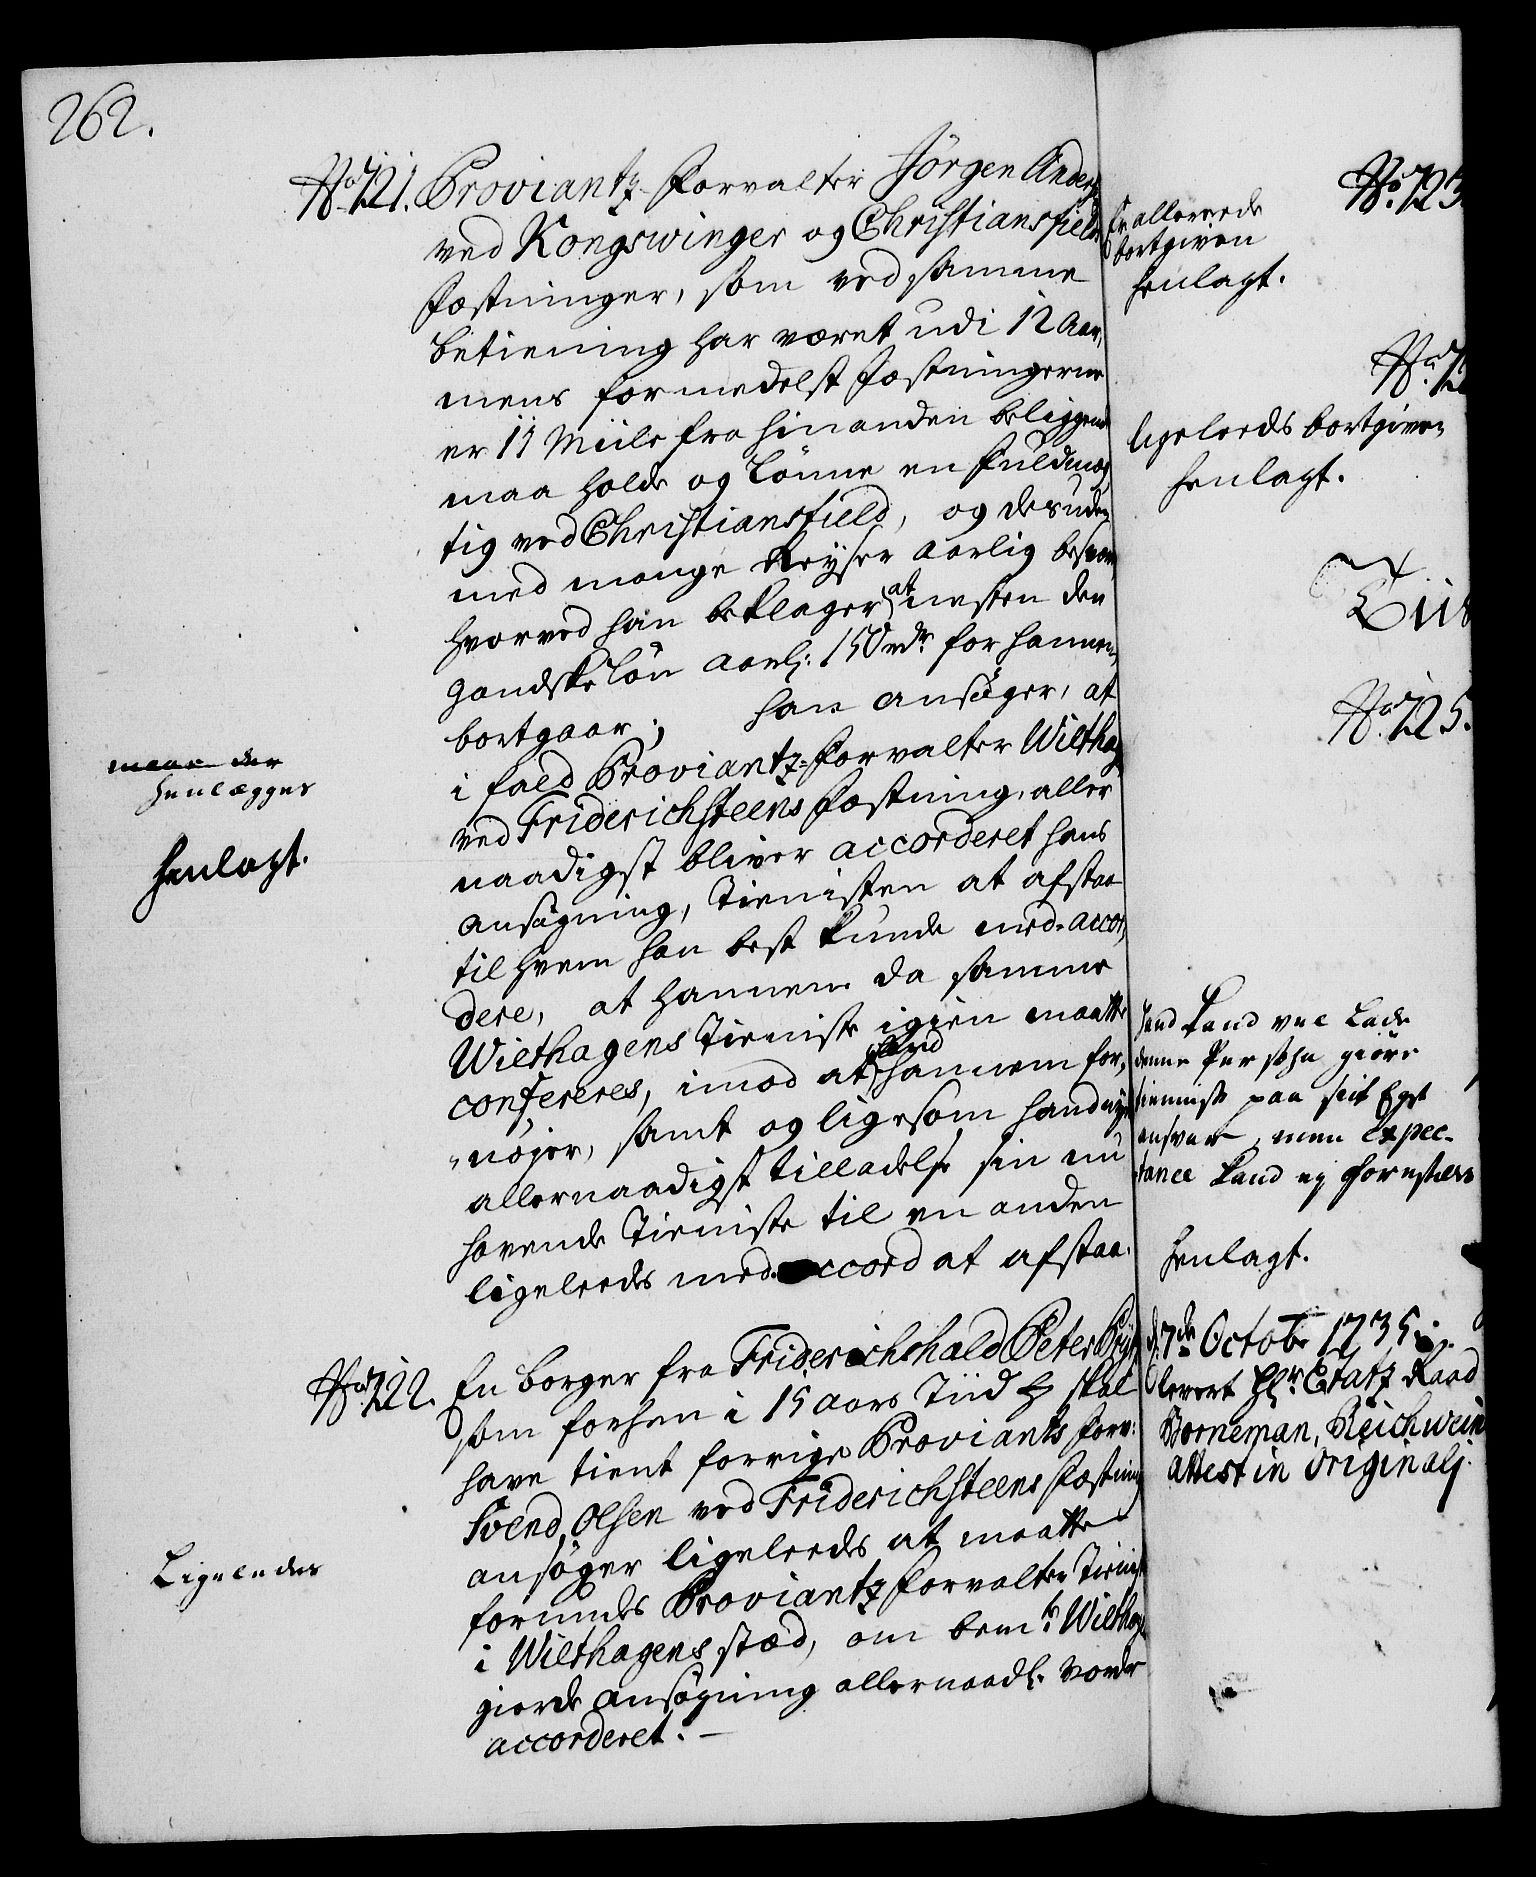 262.
No 721. Proviantz-Forvalter Jörgen Anders
ved Kongswinger og Christiansfield
Fæstninger, som ved samme
betiening har været udi 12 Aar,
mens formedelst Fæstningerne
er 11 Miile fra hinanden beliggend
maa holde og Lønne en Fuldmæg
tig ved Christiansfield, og desuden
med mange Reyser aarlig besvær
hvorved han beklager at næsten den
gandske Løn aarl: 150 rdr for hannem
bortgaar; han ansøger, at
i fald Proviantz-Forvalter Wilthag
ved Friderichsteens Fæstning, aller
naadigst bliver accorderet hans
ansøgning, Tienisten at afstaa
til hvem han best kunde med accor,
dere, at hannem da samme
Wilthagens Tieniste igien maatte
confereres, imod at hand hannem for,
nøjer, samt og ligesom hand nyde
allernaadigst tilladelse sin nu
havende Tieniste til en anden
ligeleedes med accord at afstaa.
men der
henlægges
henlagt.
No 722. En borger fra Friderichshald Peter
som forhen i 15 aars Tiid skal
have tient forrige Proviants Forv:
Svend Olsen ved Friderichsteens Fæstning
ansøger ligeleedes at maatte
forundes Proviantz Forvalter Tienist
i Wilthagens stæd, om bemte Wilthag
giorde ansøgning allernaadl: vorder
accorderet. -
Ligeledes
No 723.
Er allereede
bortgiven
henlagt.
No 72
ligeleeds bortgiven
henlagt.
No 725.
hand kand vel Lade
denne Persohn giøre
tienniste paa sit Eget
ansvar, men expec-
tance kand ey
henlagt.
d: 7de Octobr 1735
levert Hr Etatz Raad
Borneman, Reichwein
Attest in originali.